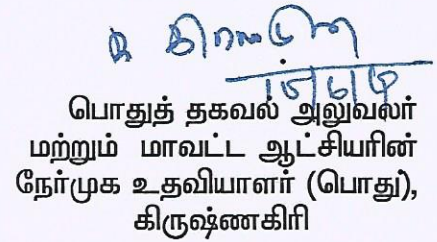 பொதுத் தகவல் அலுவலர்
மற்றும் மாவட்ட ஆட்சியரின்
நேர்முக உதவியாளர் (பொது),
கிருஷ்ணகிரி